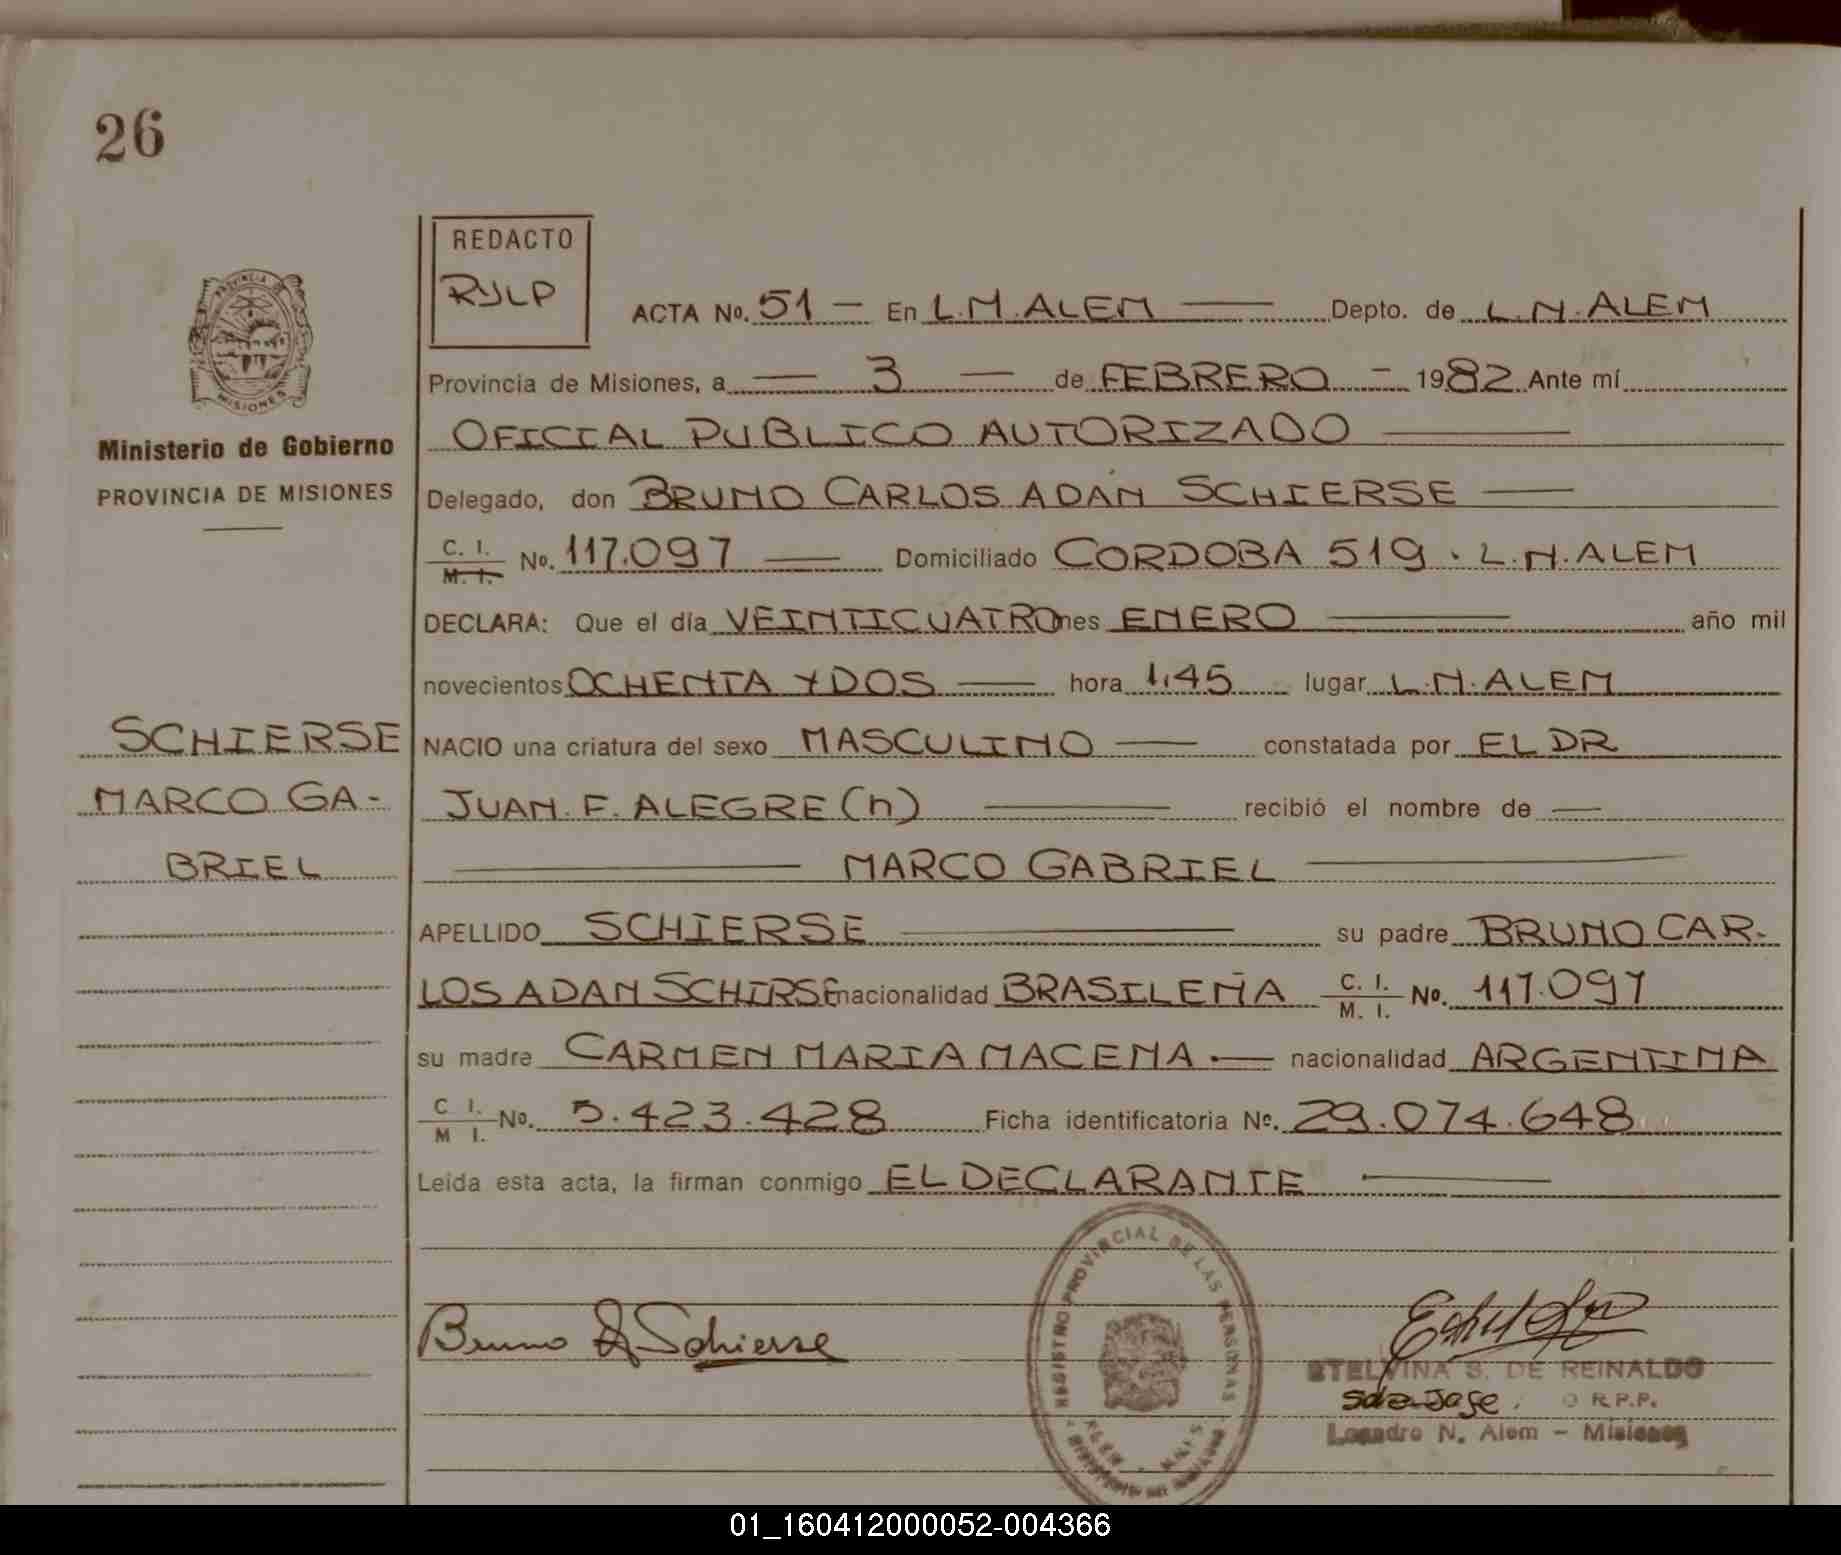 26
REDACTO
RJLP
ACTA No. 51 — En L.N.ALEM — Depto. de L.N.ALEM
PROVINCIA DE
MISIONES
Provincia de Misiones, a — 3 — de FEBRERO - 1982 Ante mí
Ministerio de Gobierno
OFICIAL PUBLICO AUTORIZADO —
PROVINCIA DE MISIONES
Delegado, don BRUNO CARLOS ADAN SCHIERSE —
C. I. / M. I. No. 117.097 — Domiciliado CORDOBA 519 . L.N.ALEM
DECLARA: Que el día VEINTICUATRO mes ENERO — año mil
novecientos OCHENTA Y DOS — hora 1,45 lugar L.N.ALEM
SCHIERSE
NACIO una criatura del sexo MASCULINO — constatada por EL DR
MARCO GA-
JUAN. F. ALEGRE (h) — recibió el nombre de —
BRIEL
— MARCO GABRIEL —
APELLIDO SCHIERSE — su padre BRUNO CAR-
LOS ADAN SCHIRSE nacionalidad BRASILEÑA C. I. / M. I. No. 117.097
su madre CARMEN MARIA MACENA.— nacionalidad ARGENTINA
C I. / M I. No. 5.423.428 Ficha identificatoria Nº. 29.074.648
Leída esta acta, la firman conmigo EL DECLARANTE —
REGISTRO PROVINCIAL DE LAS PERSONAS
ALEM
Bruno A Schierse
STELVINA S. DE REINALDO
O R.P.P.
Leandro N. Alem - Misiones
01_160412000052-004366